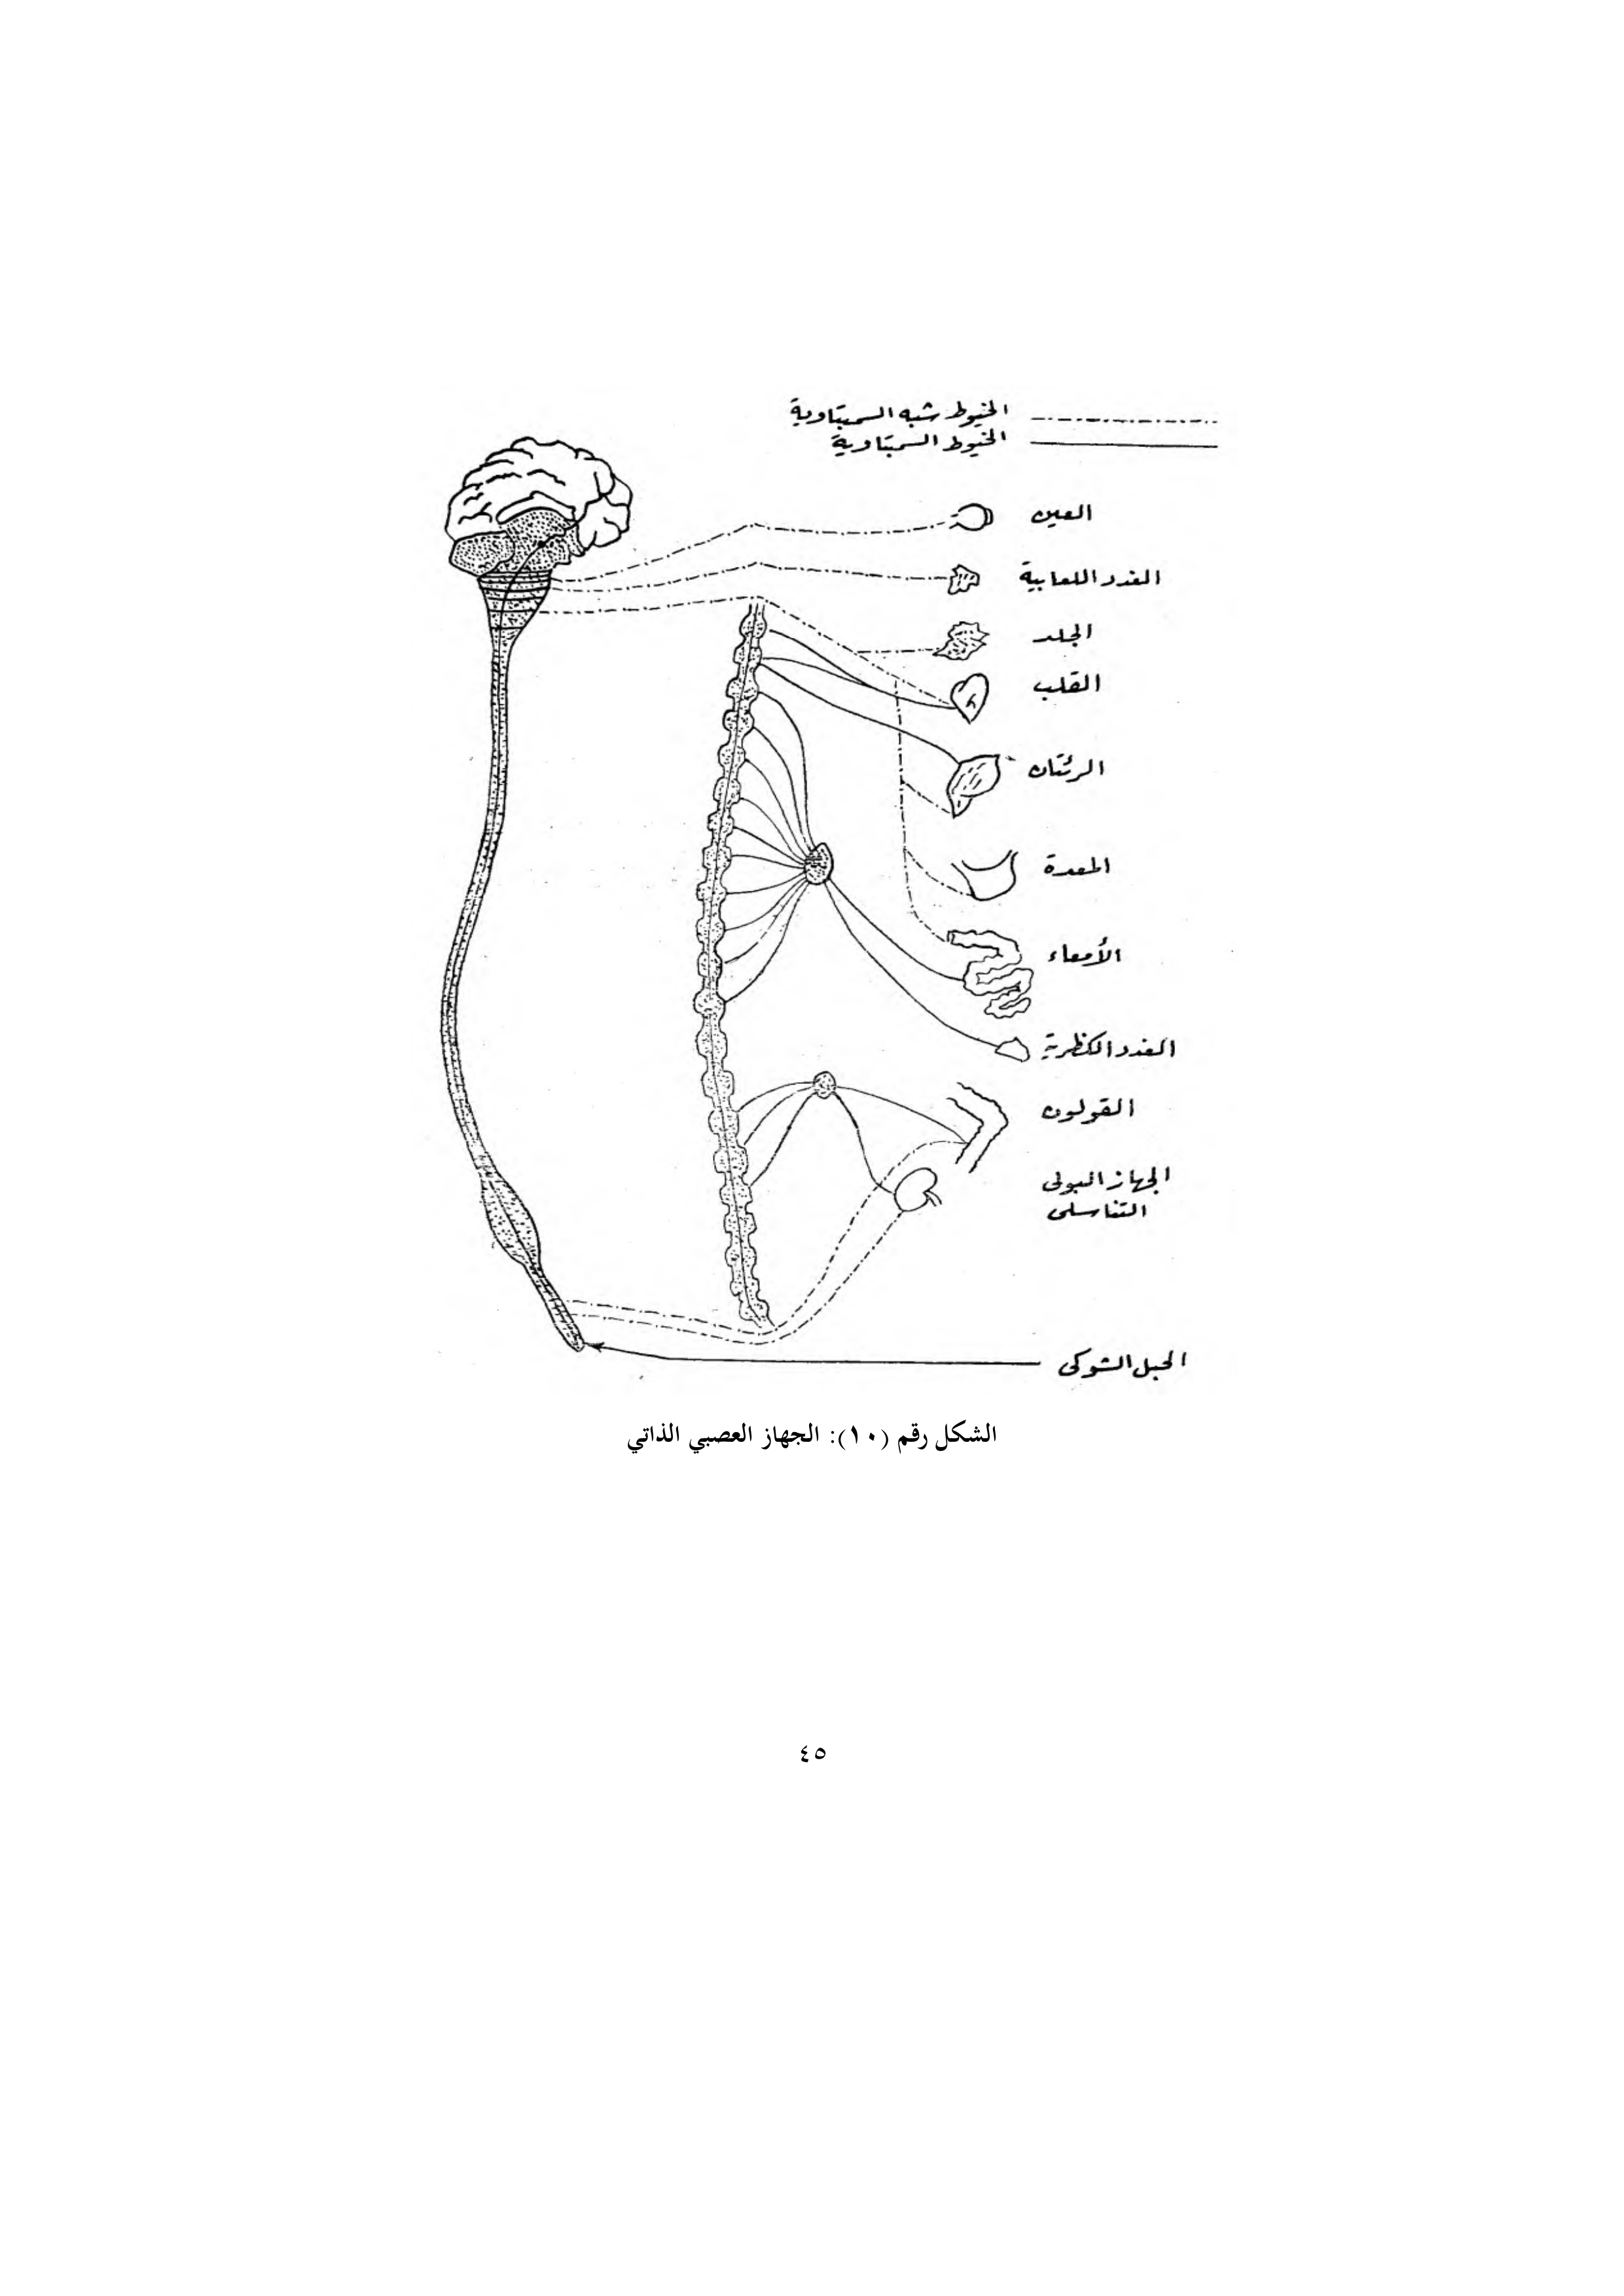 الخيوط شبه السمبتاوية
الخيوط السمبتاوية
العين
الغدد اللعابية
الجلد
القلب
الرئتان
المعدة
الأمعاء
الغدد الكظرية
القولون
الجهاز البولى
التناسلى
الحبل الشوكى
الشكل رقم (١٠): الجهاز العصبي الذاتي
٤٥